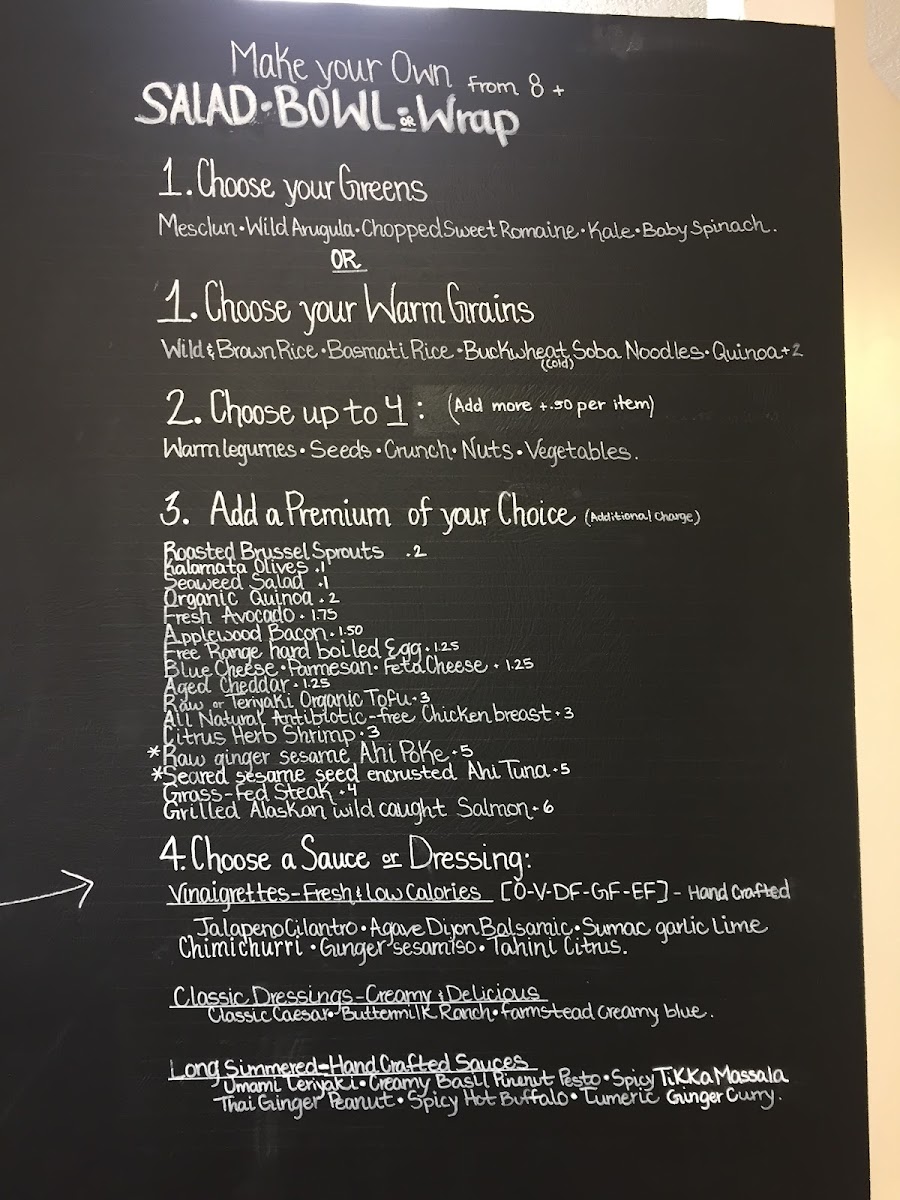 Make your Own from 8 +
SALAD • BOWL • OR Wrap
1. Choose your Greens
Mesclun • Wild Arugula • Chopped Sweet Romaine • Kale • Baby Spinach.
OR
1. Choose your Warm Grains
Wild & Brown Rice • Basmati Rice • Buckwheat Soba Noodles • Quinoa +2
(cold)
2. Choose up to 4 : (Add more +.50 per item)
Warm legumes • Seeds • Crunch • Nuts • Vegetables.
3. Add a Premium of your Choice (Additional Charge)
Roasted Brussel Sprouts .2
Kalamata Olives .1
Seaweed Salad .1
Organic Quinoa . 2
Fresh Avocado • 1.75
Applewood Bacon • 1.50
Free Range hard boiled Egg • 1.25
Blue Cheese • Parmesan • Feta Cheese • 1.25
Aged Cheddar • 1.25
Raw or Teriyaki Organic Tofu • 3
All Natural Antibiotic-free Chicken breast • 3
Citrus Herb Shrimp • 3
*Raw ginger sesame Ahi Poke • 5
*Seared sesame seed encrusted Ahi Tuna • 5
Grass-fed Steak • 4
Grilled Alaskan wild caught Salmon • 6
4. Choose a Sauce or Dressing:
Vinaigrettes - Fresh & Low Calories [O-V-DF-GF-EF] - Hand Crafted
Jalapeno Cilantro • Agave Dijon Balsamic • Sumac garlic Lime
Chimichurri • Ginger sesamiso • Tahini Citrus.
Classic Dressings - Creamy & Delicious
Classic Caesar • Buttermilk Ranch • farmstead creamy blue.
Long Simmered - Hand Crafted Sauces
Umami Teriyaki • Creamy Basil Pinenut Pesto • Spicy Tikka Massala
Thai Ginger Peanut • Spicy Hot Buffalo • Tumeric Ginger Curry.